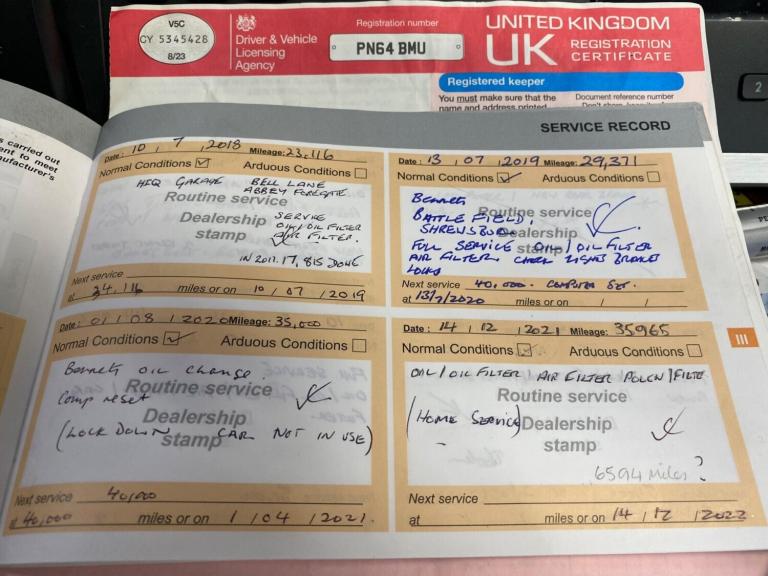 V5C
CY 5345428
8/23
Driver & Vehicle
Licensing
Agency
Registration number
PN64 BMU
UNITED KINGDOM
UK REGISTRATION
CERTIFICATE
Registered keeper
You must make sure that the
name and address printed
Document reference number
2
s carried out
ent to meet
nufacturer's
SERVICE RECORD
Date: 10 / 7 / 2018 Mileage: 23,116
Normal Conditions Arduous Conditions
HIQ GARAGE BELL LANE
ABBEY FOREGATE
Routine service
Dealership
stamp
SERVICE
OIL/OIL FILTER
AIR FILTER.
IN 2017. 17,815 DONE
Next service
at 34,116 miles or on 10 / 07 / 2019
Date: 13 / 07 / 2019 Mileage: 29,371
Normal Conditions Arduous Conditions
Bennetts
BATTLEFIELD,
SHREWSBURY
Routine service
Dealership
stamp
FULL SERVICE OIL/OIL FILTER
AIR FILTER, CHECK LIGHTS BRAKES
LOCKS
Next service 40,000. COMPUTER SET.
at 13/7/2020 miles or on / /
Date: 01 / 08 / 2020 Mileage: 35,000
Normal Conditions Arduous Conditions
Bennetts OIL change.
Comp reset
Routine service
Dealership
stamp
(LOCK DOWN CAR NOT IN USE)
Next service 40,000
at 40,000 miles or on 1 / 04 / 2021
Date: 14 / 12 / 2021 Mileage: 35965
Normal Conditions Arduous Conditions
OIL/OIL FILTER, AIR FILTER POLEN/FILTE
Routine service
(HOME SERVICE) Dealership
stamp
6594 Miles?
Next service
at miles or on 14 / 12 / 2022
III